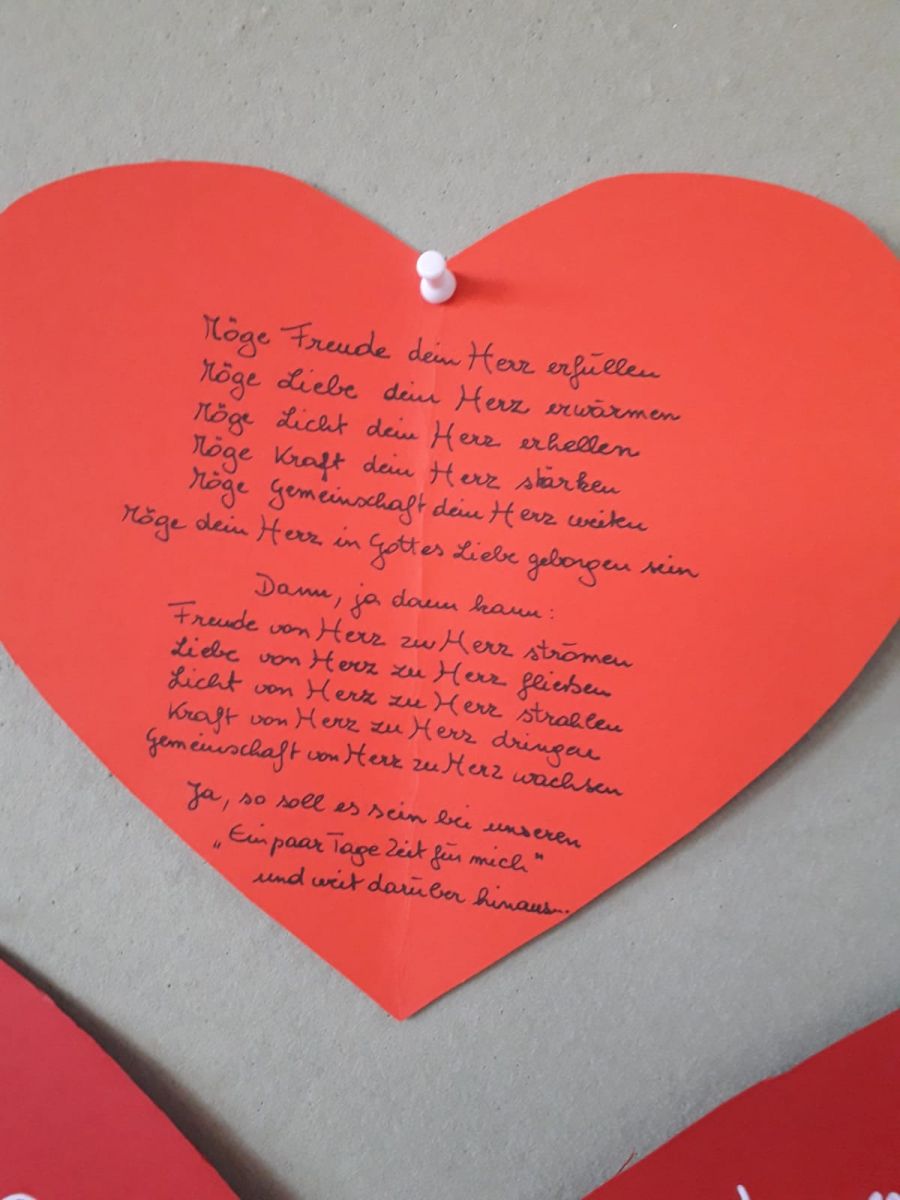 Möge Freude dein Herz erfüllen
Möge Liebe dein Herz erwärmen
Möge Licht dein Herz erhellen
Möge Kraft dein Herz stärken
Möge Gemeinschaft dein Herz weiten
Möge dein Herz in Gottes Liebe geborgen sein
Dann, ja dann kann:
Freude von Herz zu Herz strömen
Liebe von Herz zu Herz fließen
Licht von Herz zu Herz strahlen
Kraft von Herz zu Herz dringen
Gemeinschaft von Herz zu Herz wachsen
Ja, so soll es sein bei unseren
„Ein paar Tage Zeit für mich"
und weit darüber hinaus...